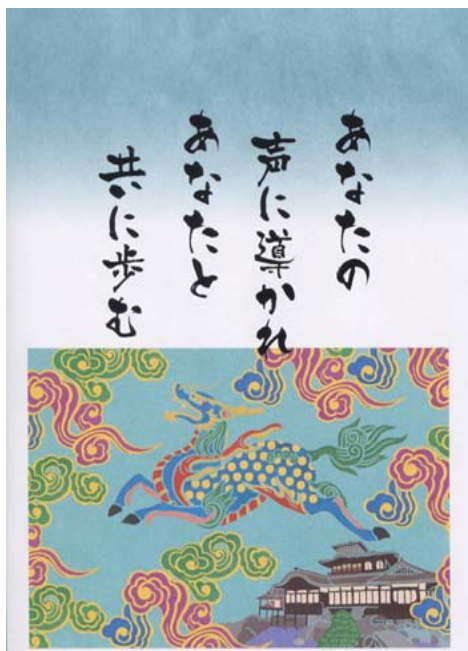 あなたの
声に導かれ
あなたと
共に歩む